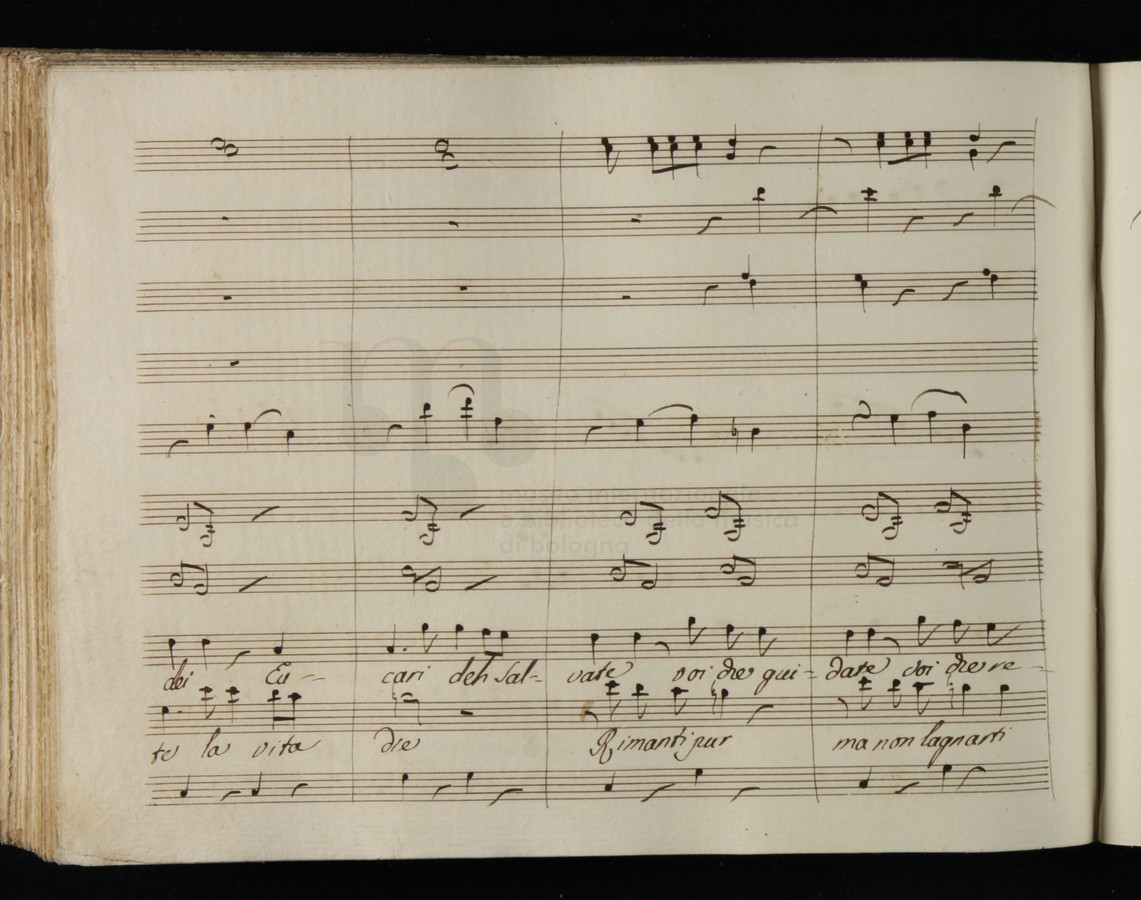 dei Cu -- cari deh Sal= vate voi che gui= date voi che re -
museo internazionale
e biblioteca della musica
di bologna
te la vita die Rimanti pur ma non lagnarti